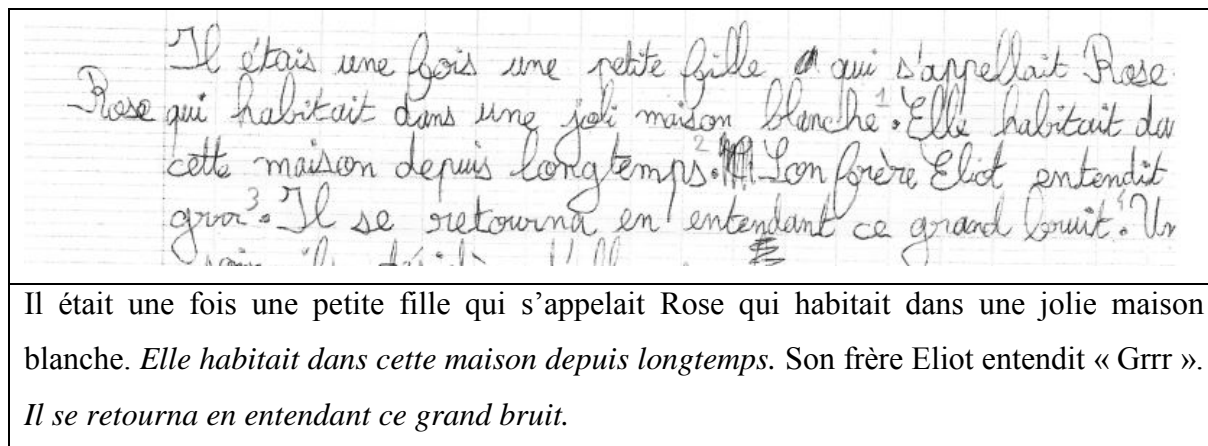 Il étais une fois une petite fille qui s'appellait Rose
Rose qui habitait dans une joli maison blanche1. Elle habitait da
cette maison depuis longtemps2. Son frère Eliot entendit
grrr3. Il se retourna en entendant ce grand bruit4. Un
Il était une fois une petite fille qui s'appelait Rose qui habitait dans une jolie maison
blanche. Elle habitait dans cette maison depuis longtemps. Son frère Eliot entendit « Grrr ».
Il se retourna en entendant ce grand bruit.